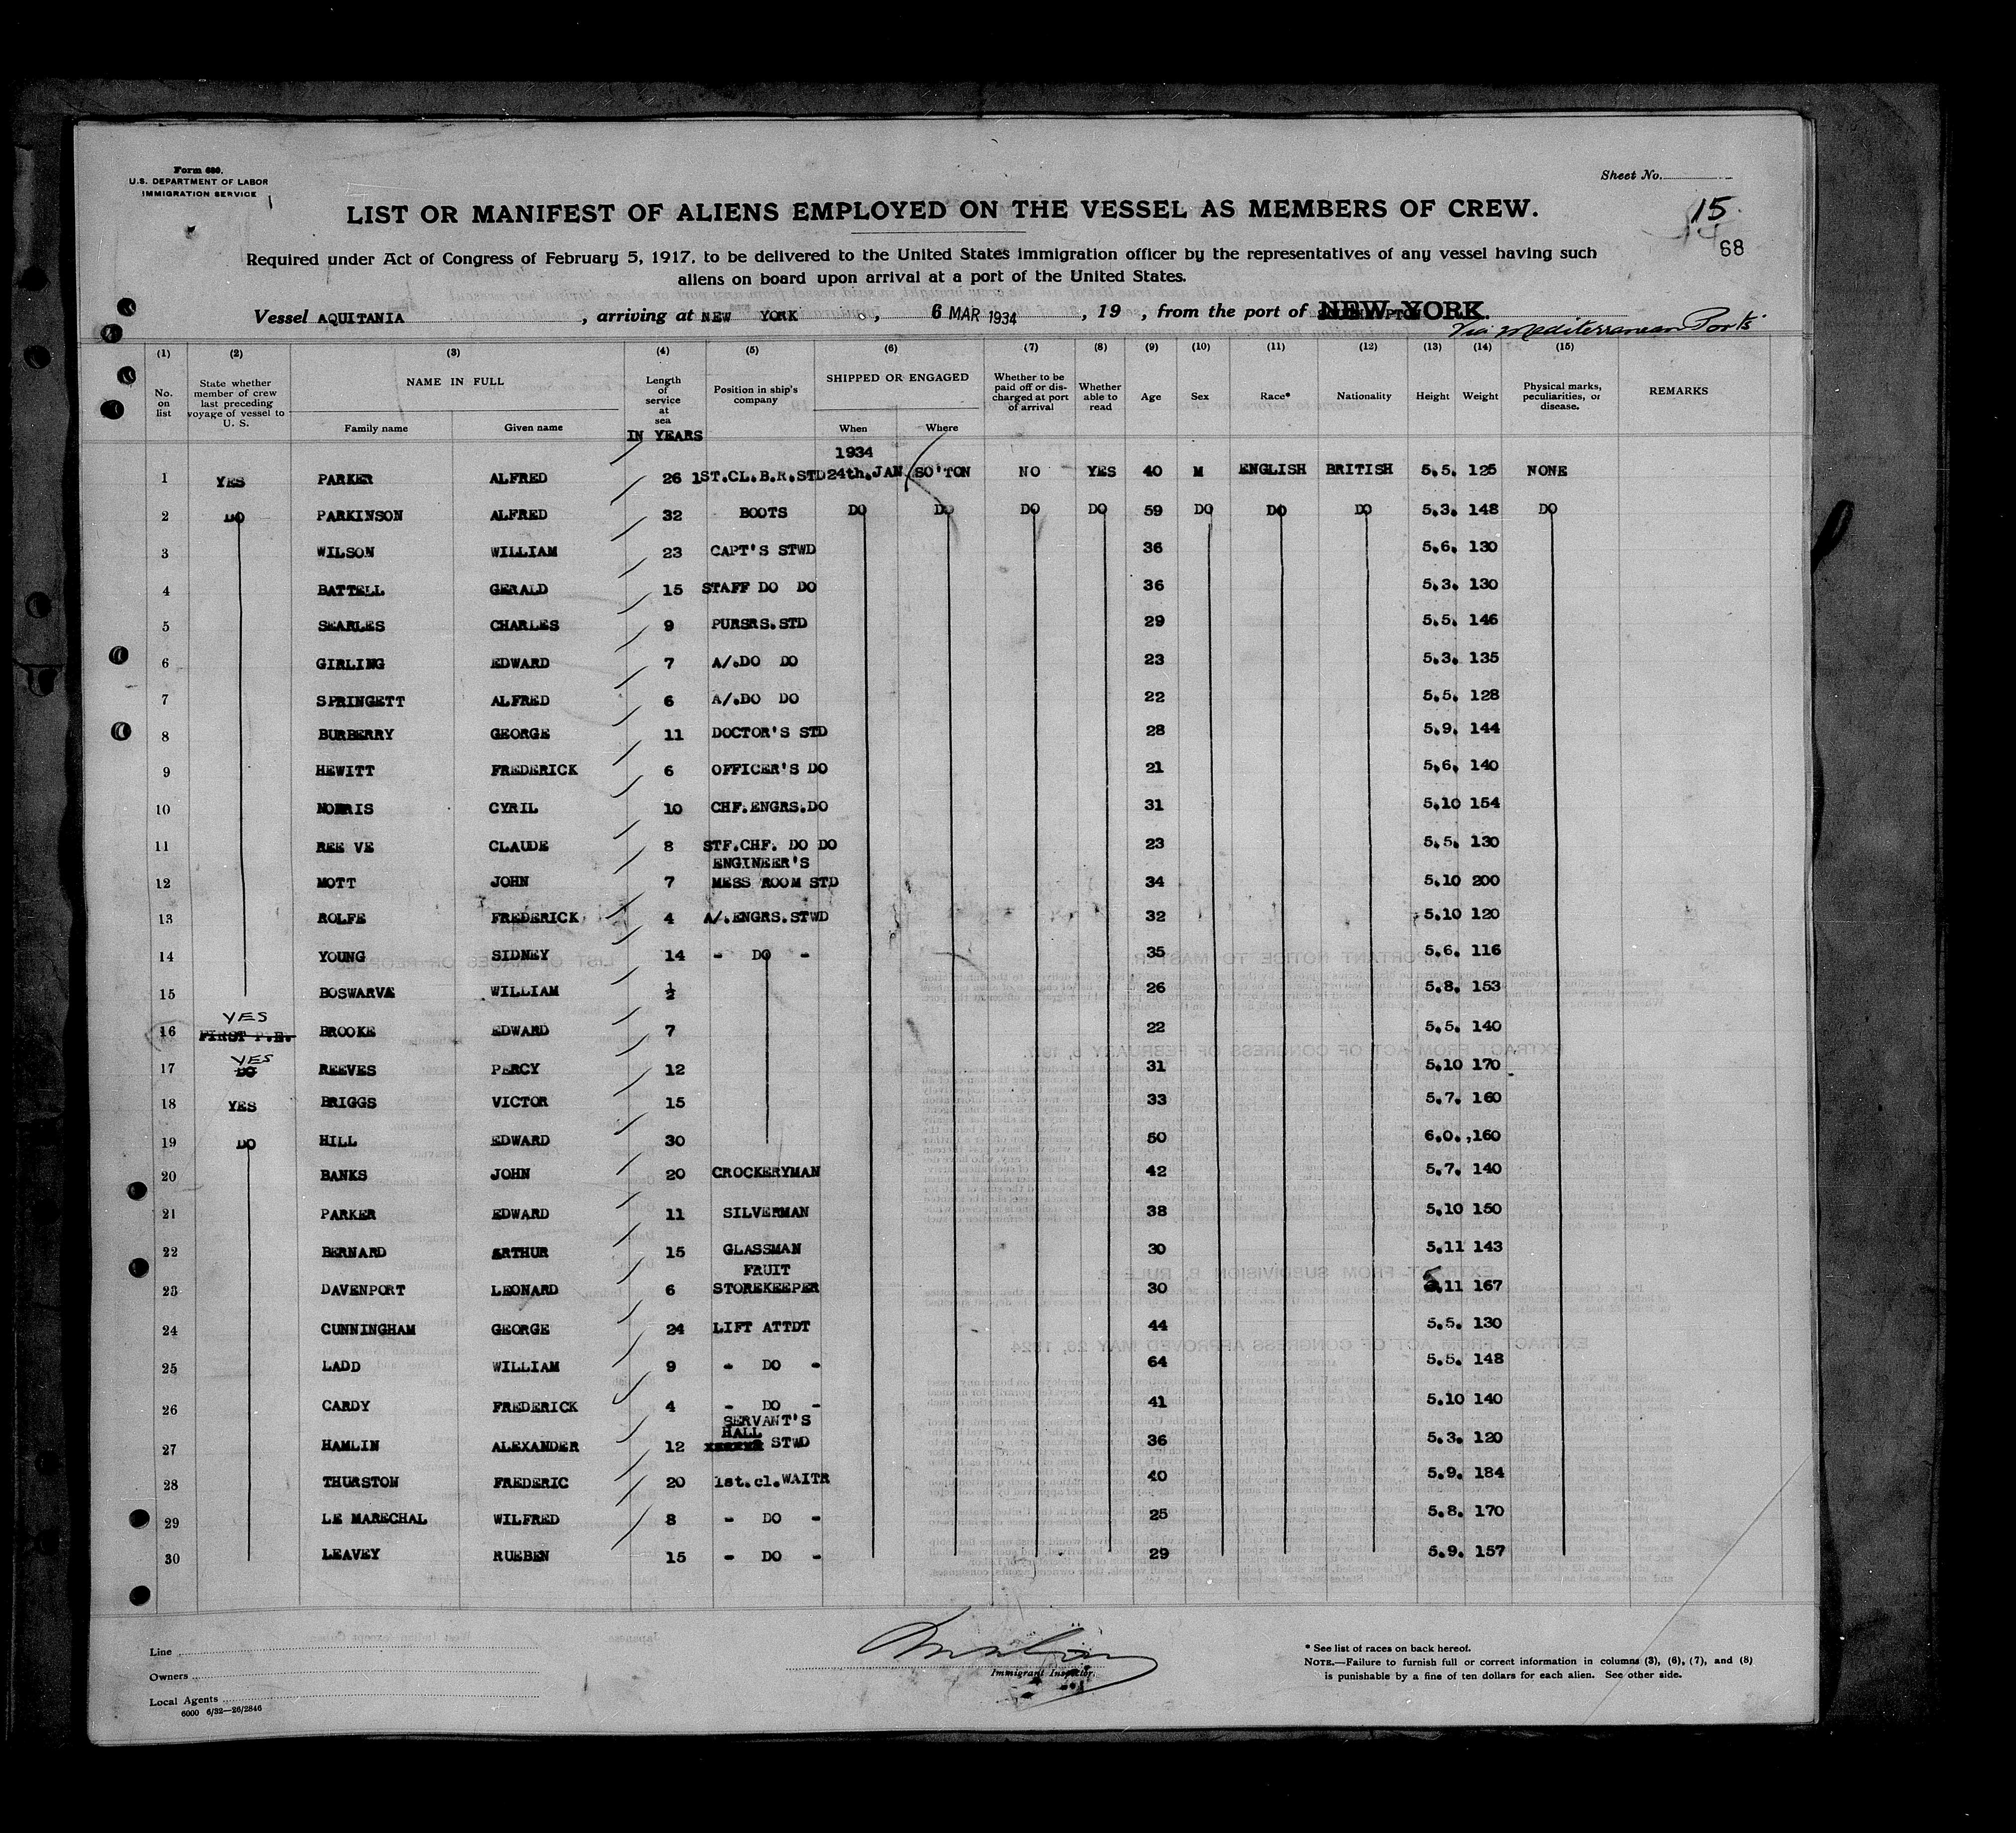 Form 680.
U.S. DEPARTMENT OF LABOR
IMMIGRATION SERVICE
Sheet No.
LIST OR MANIFEST OF ALIENS EMPLOYED ON THE VESSEL AS MEMBERS OF CREW.
15
68
Required under Act of Congress of February 5, 1917, to be delivered to the United States immigration officer by the representatives of any vessel having such
aliens on board upon arrival at a port of the United States.
Vessel AQUITANIA , arriving at NEW YORK , 6 MAR 1934 , 19 , from the port of NEW YORK.
Via Mediterranean Ports
(1) (2) (3) (4) (5) (6) (7) (8) (9) (10) (11) (12) (13) (14) (15)
No. on list
State whether member of crew last preceding voyage of vessel to U. S.
NAME IN FULL
Family name Given name
Length of service at sea
IN YEARS
Position in ship's company
SHIPPED OR ENGAGED
When Where
Whether to be paid off or discharged at port of arrival
Whether able to read
Age Sex Race* Nationality Height Weight
Physical marks, peculiarities, or disease.
REMARKS
1934
1 YES PARKER ALFRED 26 1ST.CL.B.R.STD 24th.JAN SO'TON NO YES 40 M ENGLISH BRITISH 5.5. 125 NONE
2 DO PARKINSON ALFRED 32 BOOTS DO DO DO DO 59 DO DO DO 5.3. 148 DO
3 WILSON WILLIAM 23 CAPT'S STWD 36 5.6. 130
4 BATTELL GERALD 15 STAFF DO DO 36 5.3. 130
5 SEARLES CHARLES 9 PURSRS.STD 29 5.5. 146
6 GIRLING EDWARD 7 A/.DO DO 23 5.3. 135
7 SPRINGETT ALFRED 6 A/.DO DO 22 5.5. 128
8 BURBERRY GEORGE 11 DOCTOR'S STD 28 5.9. 144
9 HEWITT FREDERICK 6 OFFICER'S DO 21 5.6. 140
10 NORRIS CYRIL 10 CHF.ENGRS.DO 31 5.10 154
11 REE VE CLAUDE 8 STF.CHF. DO DO 23 5.5. 130
ENGINEER'S
12 MOTT JOHN 7 MESS ROOM STD 34 5.10 200
13 ROLFE FREDERICK 4 A/.ENGRS.STWD 32 5.10 120
14 YOUNG SIDNEY 14 - DO - 35 5.6. 116
15 BOSWARVA WILLIAM ½ 26 5.8. 153
YES
16 FIRST P.E. BROOKE EDWARD 7 22 5.5. 140
YES
17 DO REEVES PERCY 12 31 5.10 170
18 YES BRIGGS VICTOR 15 33 5.7. 160
19 DO HILL EDWARD 30 50 6.0. 160
20 BANKS JOHN 20 CROCKERYMAN 42 5.7. 140
21 PARKER EDWARD 11 SILVERMAN 38 5.10 150
22 BERNARD ARTHUR 15 GLASSMAN 30 5.11 143
FRUIT
23 DAVENPORT LEONARD 6 STOREKEEPER 30 5.11 167
24 CUNNINGHAM GEORGE 24 LIFT ATTDT 44 5.5. 130
25 LADD WILLIAM 9 - DO - 64 5.5. 148
26 CARDY FREDERICK 4 - DO - 41 5.10 140
SERVANT'S
HALL
27 HAMLIN ALEXANDER 12 STWD 36 5.3. 120
28 THURSTON FREDERIC 20 1st.cl.WAITR 40 5.9. 184
29 LE MARECHAL WILFRED 8 - DO - 25 5.8. 170
30 LEAVEY RUEBEN 15 - DO - 29 5.9. 157
Line
Owners
Local Agents
6000 6/32—26/2846
Immigrant Inspector.
* See list of races on back hereof.
NOTE.—Failure to furnish full or correct information in columns (3), (6), (7), and (8)
is punishable by a fine of ten dollars for each alien. See other side.